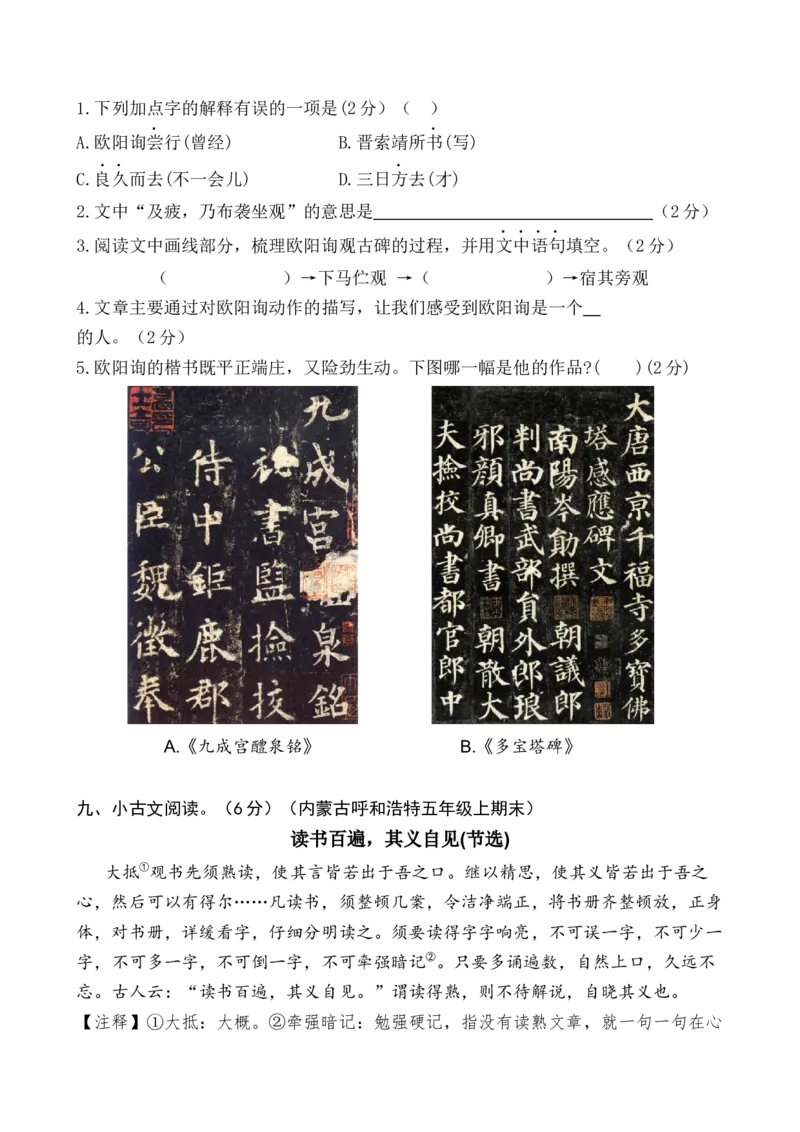 1.下列加点字的解释有误的一项是(2分)（ ）
A.欧阳询尝行(曾经) B.晋索靖所书(写)
C.良久而去(不一会儿) D.三日方去(才)
2.文中“及疲，乃布裘坐观”的意思是______________________________（2分）
3.阅读文中画线部分，梳理欧阳询观古碑的过程，并用文中语句填空。（2分）
（ ）→下马伫观 →（ ）→宿其旁观
4.文章主要通过对欧阳询动作的描写，让我们感受到欧阳询是一个__
的人。（2分）
5.欧阳询的楷书既平正端庄，又险劲生动。下图哪一幅是他的作品?( )(2分)
九成宫
泉銘
祕書監撿挍
侍中鉅鹿郡
公臣魏徵奉
大唐西京千福寺多寶佛
塔感應碑文
南陽岑勛撰 朝議郎
判尚書武部員外郎琅
邪顏真卿書 朝散大
夫撿挍尚書都官郎中
A.《九成宫醴泉铭》 B.《多宝塔碑》
九、小古文阅读。（6分）（内蒙古呼和浩特五年级上期末）
读书百遍，其义自见(节选)
大抵①观书先须熟读，使其言皆若出于吾之口。继以精思，使其义皆若出于吾之
心，然后可以有得尔……凡读书，须整顿几案，令洁净端正，将书册齐整顿放，正身
体，对书册，详缓看字，仔细分明读之。须要读得字字响亮，不可误一字，不可少一
字，不可多一字，不可倒一字，不可牵强暗记②。只要多诵遍数，自然上口，久远不
忘。古人云：“读书百遍，其义自见。”谓读得熟，则不待解说，自晓其义也。
【注释】①大抵：大概。②牵强暗记：勉强硬记，指没有读熟文章，就一句一句在心